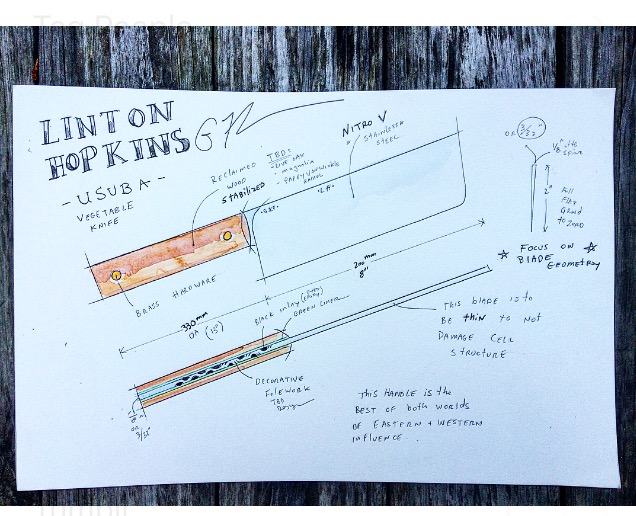 LINTON
HOPKINS
- USUBA -
VEGETABLE
KNIFE
RECLAIMED
WOOD
STABILIZED
TBD:
- magnolia
- PAPPY VAN WINKLE
BARREL
NITRO V
STAINLESS
STEEL
OR 3/32"
1/8" @ the
Spine
2"
Full
Flat
Grind
to
Zero
☆ FOCUS ON ☆
BLADE
GEOMETRY
BRASS HARDWARE
200mm
8"
330mm
OR (13")
BLACK
GREEN LINER
DECORATIVE
FILEWORK
TBD
Design
OR
3/32"
THIS BLADE IS to
BE thin to NOT
DAMAGE CELL
STRUCTURE
THIS HANDLE IS the
BEST OF both WORLDS
OF EASTERN + WESTERN
INFLUENCE.